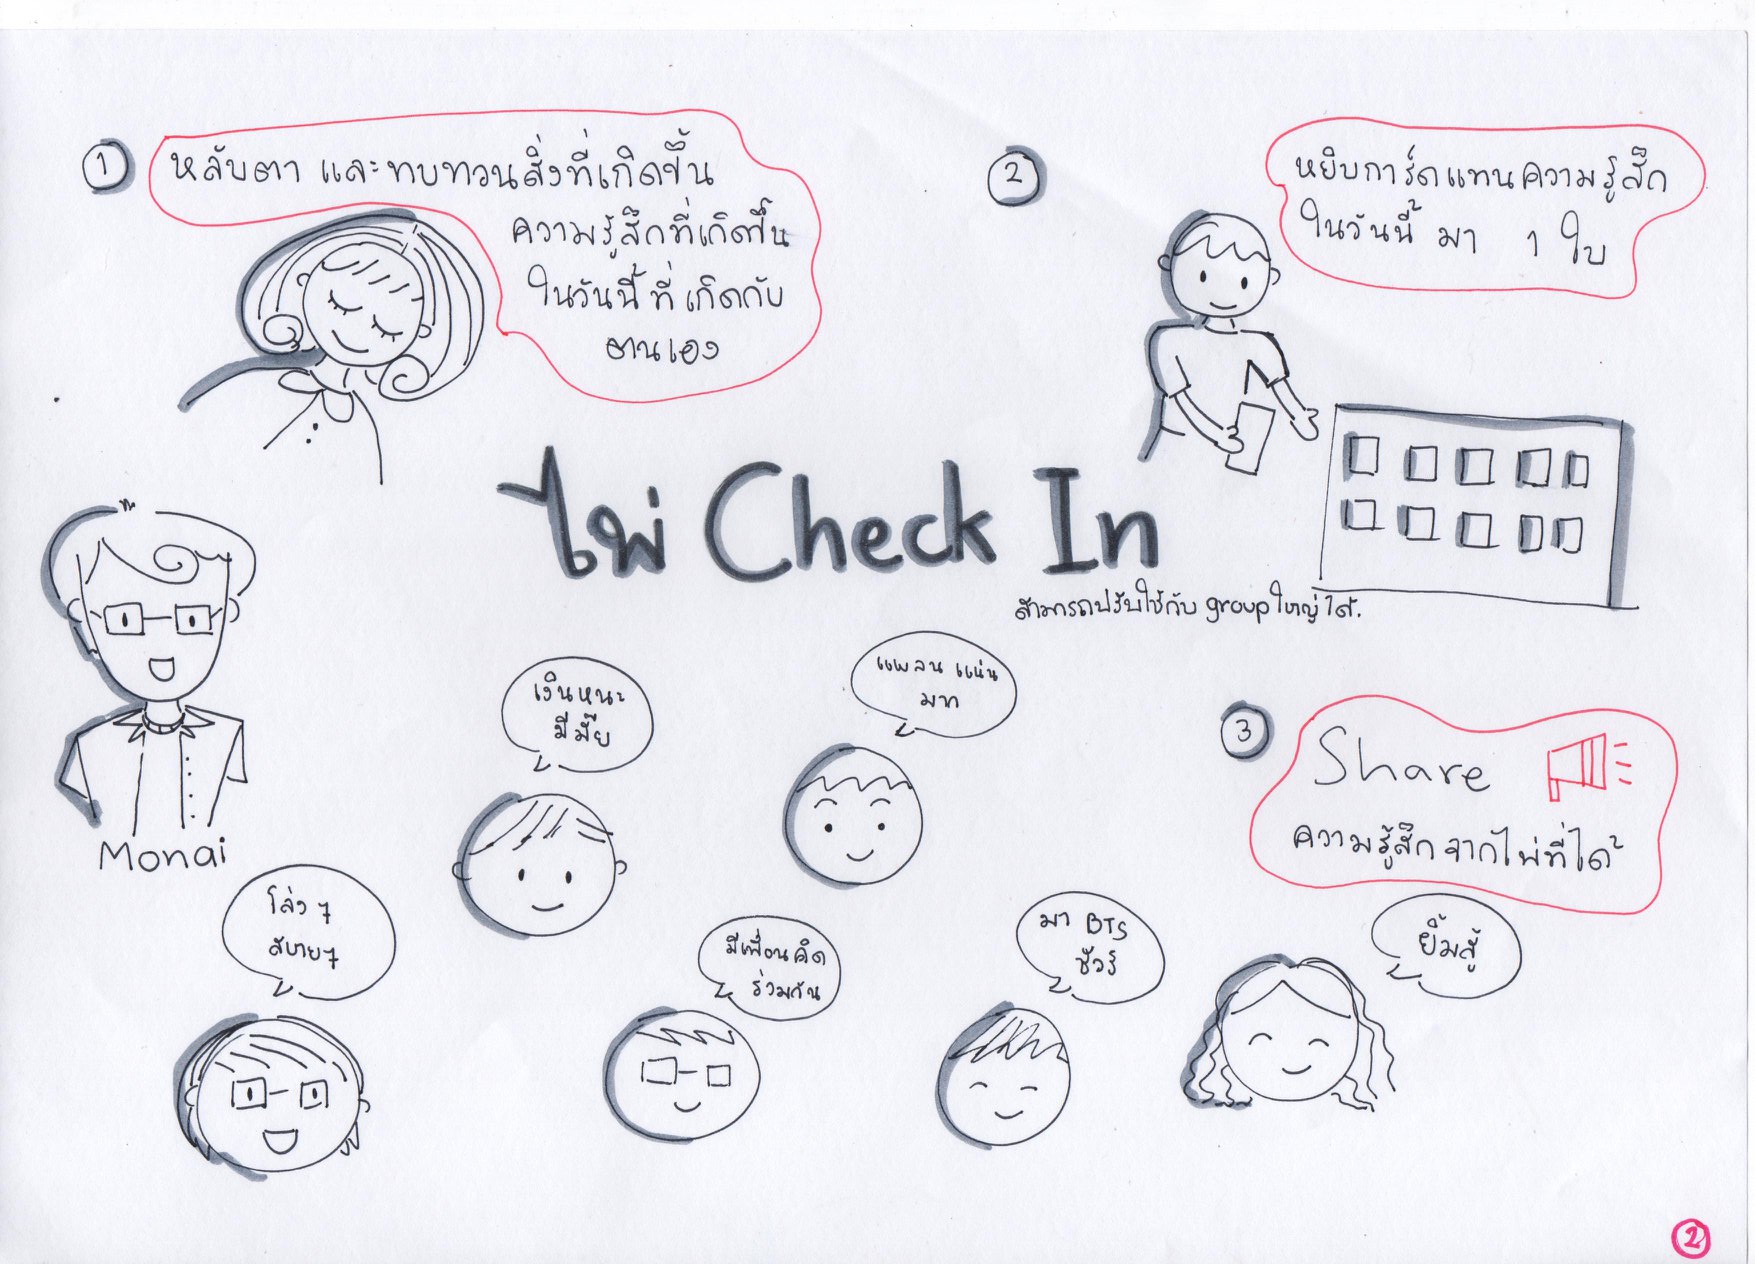 1
หลับตา และทบทวนสิ่งที่เกิดขึ้น
ความรู้สึกที่เกิดขึ้น
ในวันนี้ ที่เกิดกับ
ตนเอง
2
หยิบการ์ดแทนความรู้สึก
ในวันนี้ มา 1 ใบ
ไพ่ Check In
สามารถปรับใช้กับ group ใหญ่ได้.
Monai
เงินหนะ
มีมั๊ย
แพลนแน่น
มาก
3
Share
ความรู้สึกจากไพ่ที่ได้
โล่ง ๆ
สบาย ๆ
มีเพื่อนคิด
ร่วมกัน
มา BTS
ชัวร์
ยิ้มสู้
2